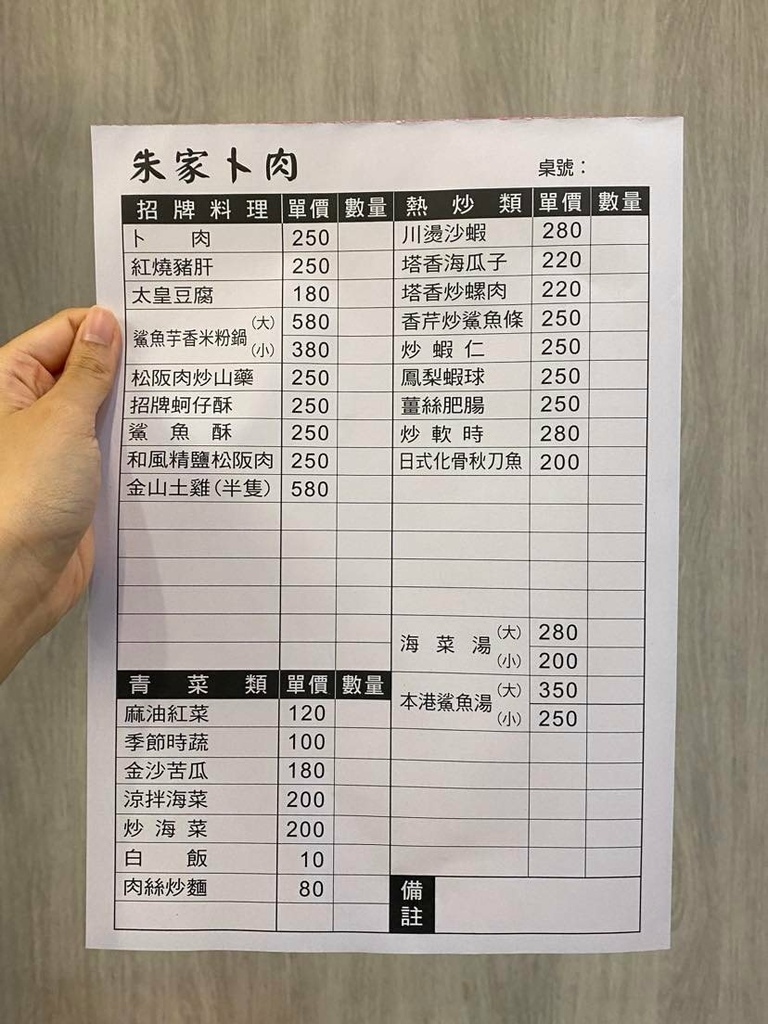 朱家卜肉
桌號：
招牌料理 單價 數量
卜肉 250
紅燒豬肝 250
太皇豆腐 180
鯊魚芋香米粉鍋 (大) 580
(小) 380
松阪肉炒山藥 250
招牌蚵仔酥 250
鯊魚酥 250
和風精鹽松阪肉 250
金山土雞(半隻) 580
青菜類 單價 數量
麻油紅菜 120
季節時蔬 100
金沙苦瓜 180
涼拌海菜 200
炒海菜 200
白飯 10
肉絲炒麵 80
熱炒類 單價 數量
川燙沙蝦 280
塔香海瓜子 220
塔香炒螺肉 220
香芹炒鯊魚條 250
炒蝦仁 250
鳳梨蝦球 250
薑絲肥腸 250
炒軟時 280
日式化骨秋刀魚 200
海菜湯 (大) 280
(小) 200
本港鯊魚湯 (大) 350
(小) 250
備註